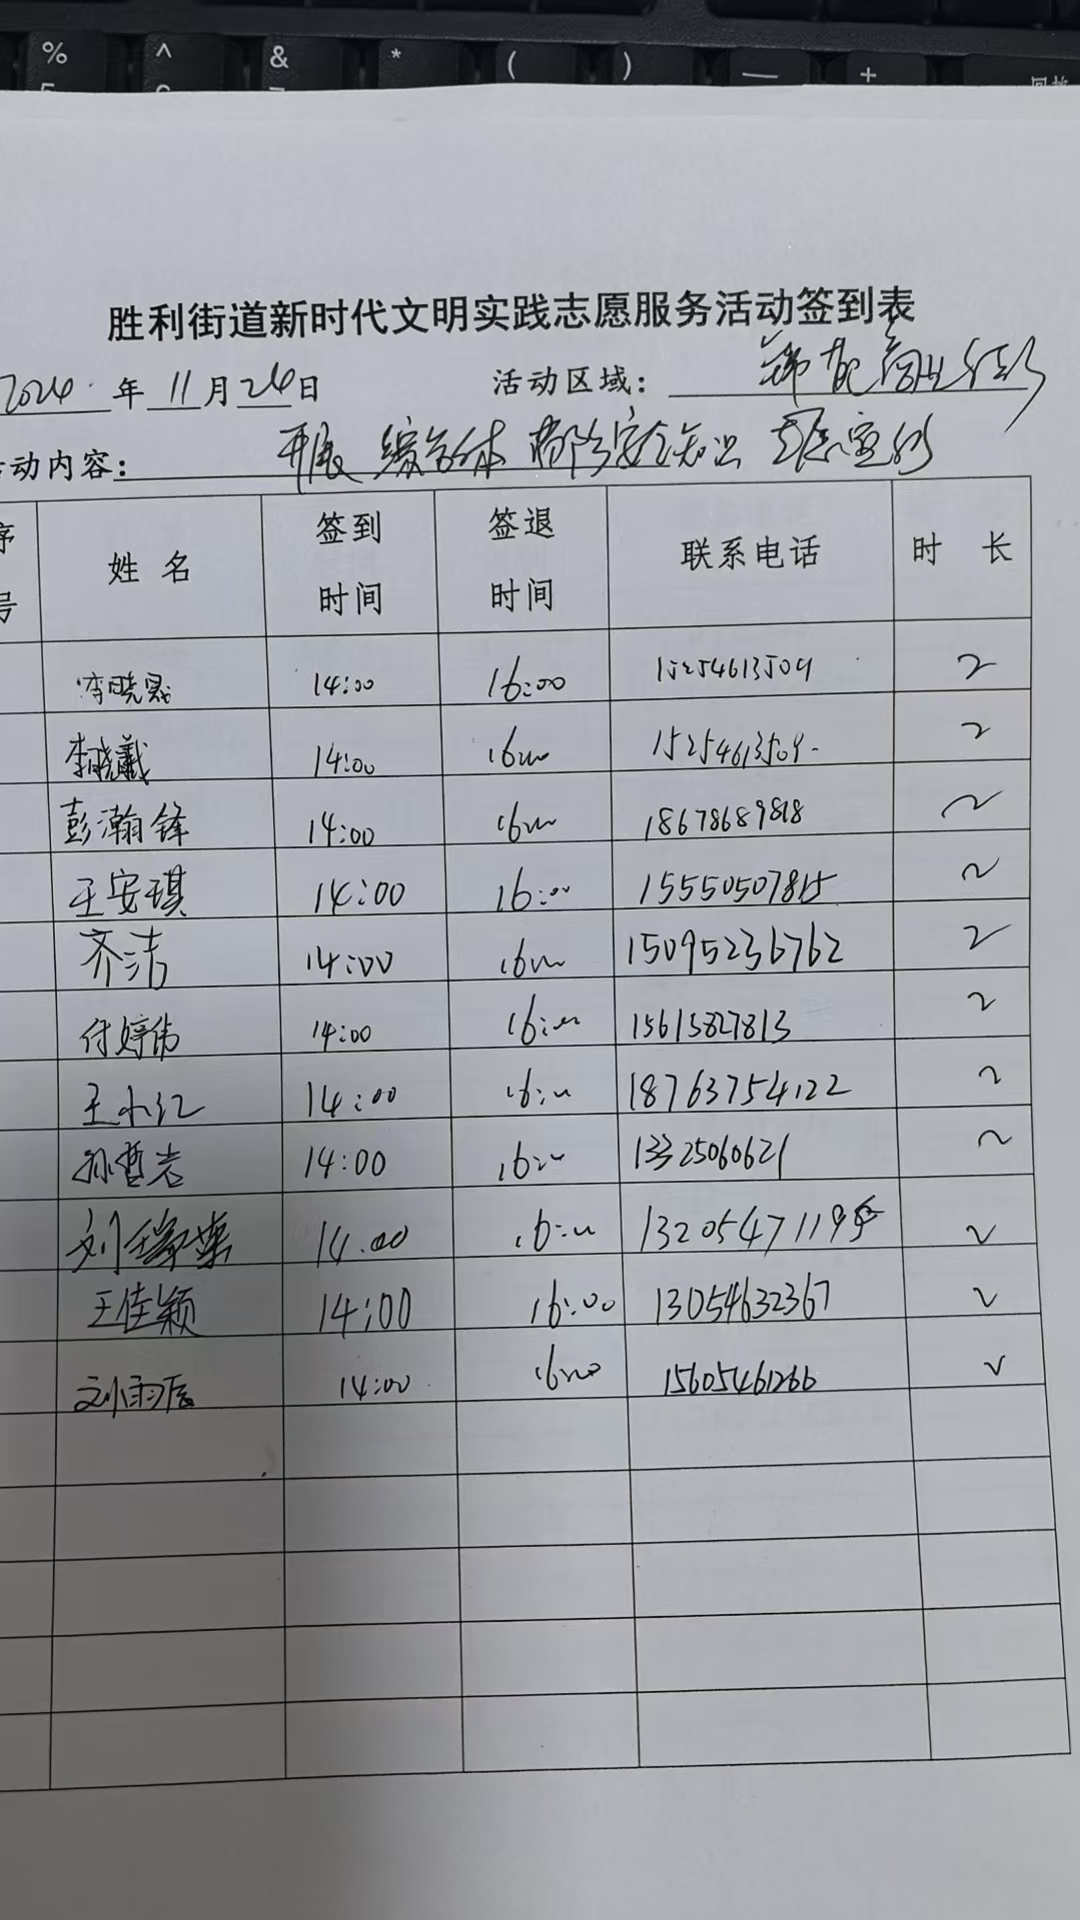 % ^ & * ( ) — +
胜利街道新时代文明实践志愿服务活动签到表
2024 年 11 月 24 日 活动区域:
动内容: 开展综合体消防安全知识
序号 姓名 签到时间 签退时间 联系电话 时长
李晓晟 14:00 16:00 15254613509 2
李晓羲 14:00 16:00 15254613509 2
彭瀚锋 14:00 16:00 18678689818 2
王安琪 14:00 16:00 15550507815 2
齐洁 14:00 16:00 15095236762 2
付婷伟 14:00 16:00 15615827813 2
王小红 14:00 16:00 18763754122 2
孙哲岩 14:00 16:00 13325060621 2
刘 14:00 16:00 1320547119 2
王佳颖 14:00 16:00 13054632367 2
刘雨辰 14:00 16:00 15605461266 2